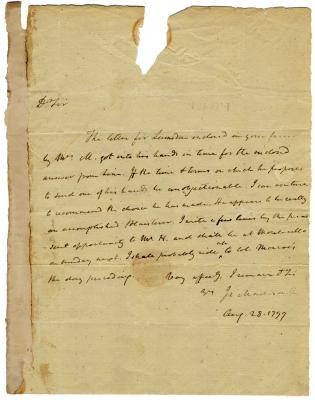 Dr Sir
The letter for Lumsden inclosed in your favor
by Mrs. M. got into his hands in time for the inclosed
answer from home. If the time & terms on which he proposes
to send one of his hands be unobjectionable. I can venture
to recommend the choice he has made. He appears to be really
an accomplished Plaisterer. I write a few lines by the pre-
sent opportunity to Mr H. and shall be at Monticello
on sunday next. I shall probably ride to Col. Monroe's
the day preceding. Very affecty. I remain Dr Sir
Yrs Js. Madison Jr
Aug. 28. 1797